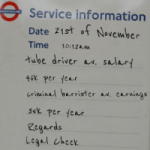 Service information
Date 21st of November
Time 10:12am
tube driver av. salary
45k per year
criminal barrister av. earnings
30k per year
Regards
Legal Check